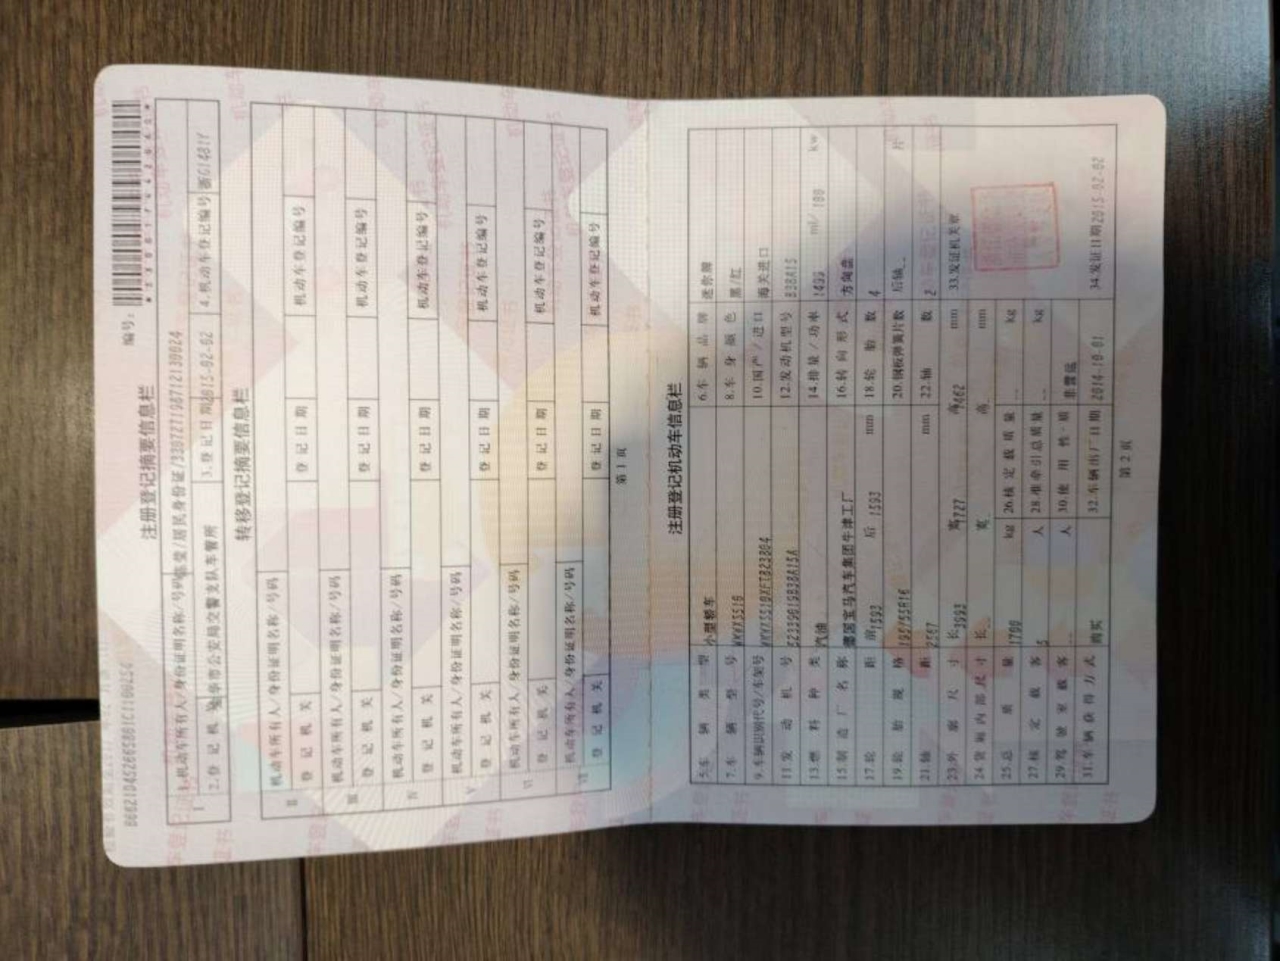 编号:
注册登记摘要信息栏
Ⅰ
1.机动车所有人/身份证明名称/号码
2.登记机关
金华市公安局交警支队车管所
3.登记日期
2015-02-02
4.机动车登记编号
转移登记摘要信息栏
Ⅱ
机动车所有人/身份证明名称/号码
登记机关
登记日期
机动车登记编号
Ⅲ
机动车所有人/身份证明名称/号码
登记机关
登记日期
机动车登记编号
Ⅳ
机动车所有人/身份证明名称/号码
登记机关
登记日期
机动车登记编号
Ⅴ
机动车所有人/身份证明名称/号码
登记机关
登记日期
机动车登记编号
Ⅵ
机动车所有人/身份证明名称/号码
登记机关
登记日期
机动车登记编号
Ⅶ
机动车所有人/身份证明名称/号码
登记机关
登记日期
机动车登记编号
第1页
注册登记机动车信息栏
5.车辆类型 小型轿车 6.车辆品牌 迷你牌
7.车辆型号 8.车身颜色 黑/红
9.车辆识别代号/车架号 10.国产/进口 海关进口
11.发动机号 12.发动机型号 B38A15
13.燃料种类 汽油 14.排量/功率 1499 ml/ 100 kw
15.制造厂名称 德国宝马汽车集团牛津工厂 16.转向形式 方向盘
17.轮距 前1593 后1593 mm 18.轮胎数 4
19.轮胎规格 20.钢板弹簧片数 后轴-- 片
21.轴距 2567 mm 22.轴数 2
23.外廓尺寸 长 宽1727 高 mm 33.发证机关章
24.货厢内部尺寸 长-- 宽 高 mm
25.总质量 1700 kg 26.核定载质量 -- kg
27.核定载客 5 人 28.准牵引总质量 -- kg
29.驾驶室载客 -- 人 30.使用性质 非营运
31.车辆获得方式 购买 32.车辆出厂日期 2014-10-01 34.发证日期2015-02-02
第2页